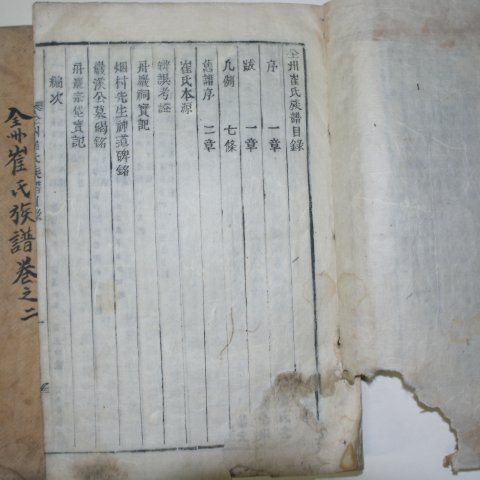 全州崔氏族譜目錄
序 一章
跋 一章
凡例 七條
舊譜序 二章
崔氏本源
辨誤考證
丹巖祠實記
烟村先生神道碑銘
巖溪公墓碣銘
丹巖宗契實記
編次
全州崔氏族譜卷之二